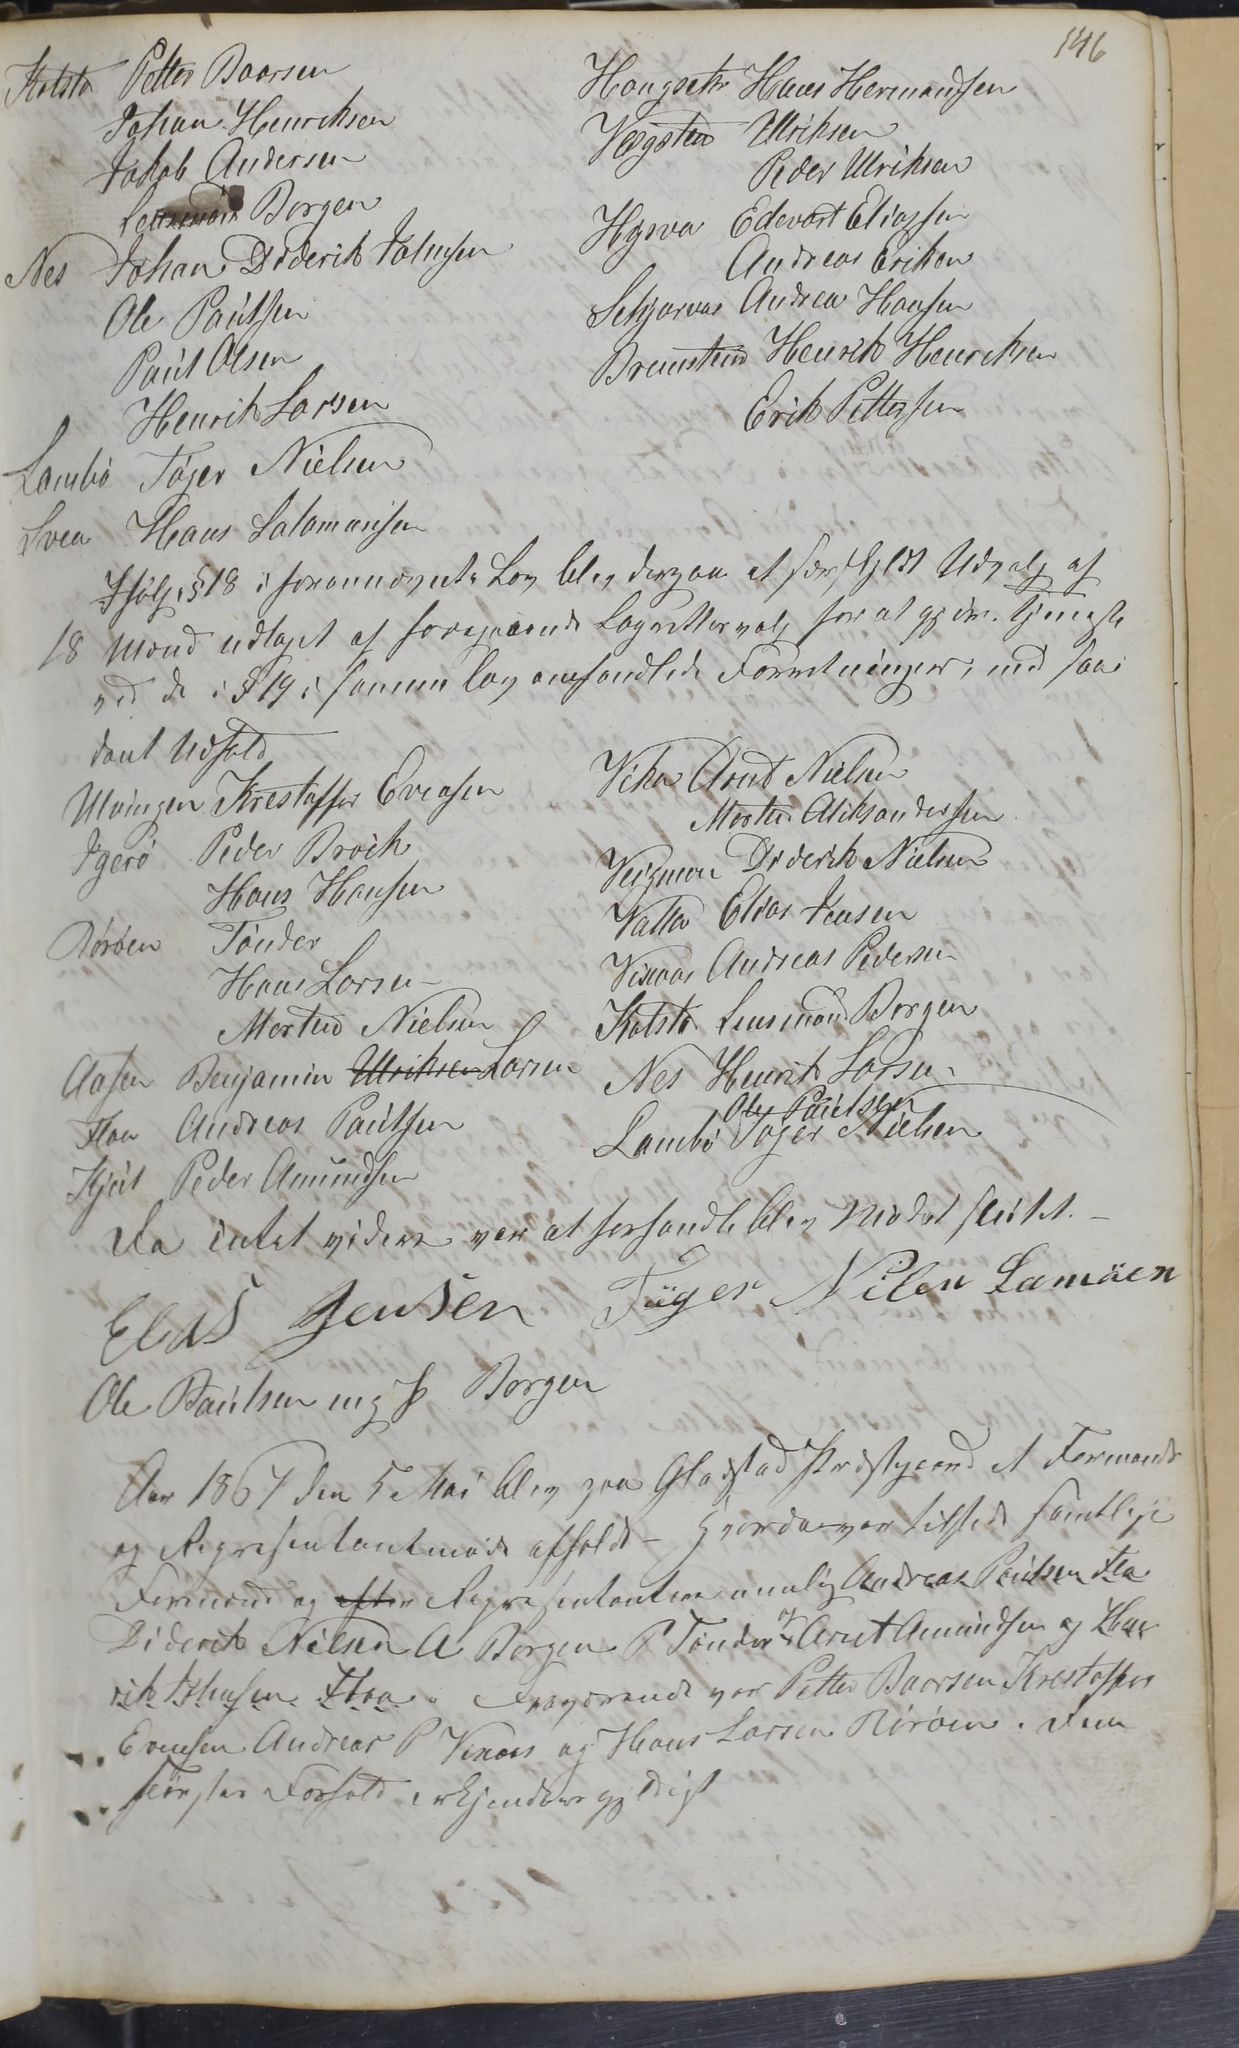 146
Holstø Petter Baarsen
Johan Henriksen
Jakob Andersen
Lensmand Borgen
Nes Johan Diderik Johnsen
Ole Paulsen
Paul Olsen
Henrik Larsen
Lambø Tøger Nielsen
Svea Hans Salamonsen
Hongsetr Hans Hermandsen
Vegsten Ulriksen
Peder Ulriksen
Hysva Edevart Eliassen
Andreas Eriksen
Schjærvær Andrea Hansen
Bremstein Henrik Henriksen
Erik Pettersen
Ifølge §18 i forannævnte Lov blev derpaa et særskildt Udvalg af
18 Mænd udtaget af foregaaende Lagrettervalg for at gjøre Tjeneste
ved de i §19 i samme Lov omhandlede Forretninger, med saa
dant Udfald
Ulvingen Krestoffer Evensen
Igerø Peder Broch
Hans Hansen
Rørøen Tønder
Hans Larsen
Morten Nielsen
Aasen Benjamin Ulriksen Larsen
Floa Andreas Paulsen
Kjul Peder Amundsen
Vika Arnt Nielsen
Morten Aleksandersen
Veigmoen Diderik Nielsen
Valla Elias Jensen
Vixaas Andreas Pedersen
Holstø Lensmand Borgen
Nes Henrik Larsen
Ole Paulsen
Lambø Tøger Nielsen
Da intet videre var at forhandle blev Mødet sluttet. –
Elas Jensen Tüger Nilen Lamöen
Ole Paulsen mg P Borgen
Aar 1867 den 5 Mai blev paa Gladstad Præstgaard et Formands
og Repræsentantmøde afholdt – hvorda var tilstede samtlige
Formænd og after Repræsentantere nemlig Andreas Paulsen Floa
Diderik Nilsen A Borgen P Tønder og Arnt Amundsen og Hen
rik Johnsen Floa. Fraværende var Petter Baarsen Krestoffer
Evensen Andreas P Vixaas og Hans Larsen Rørøen. Den
førstes Forfald erkjendtes gyldigt